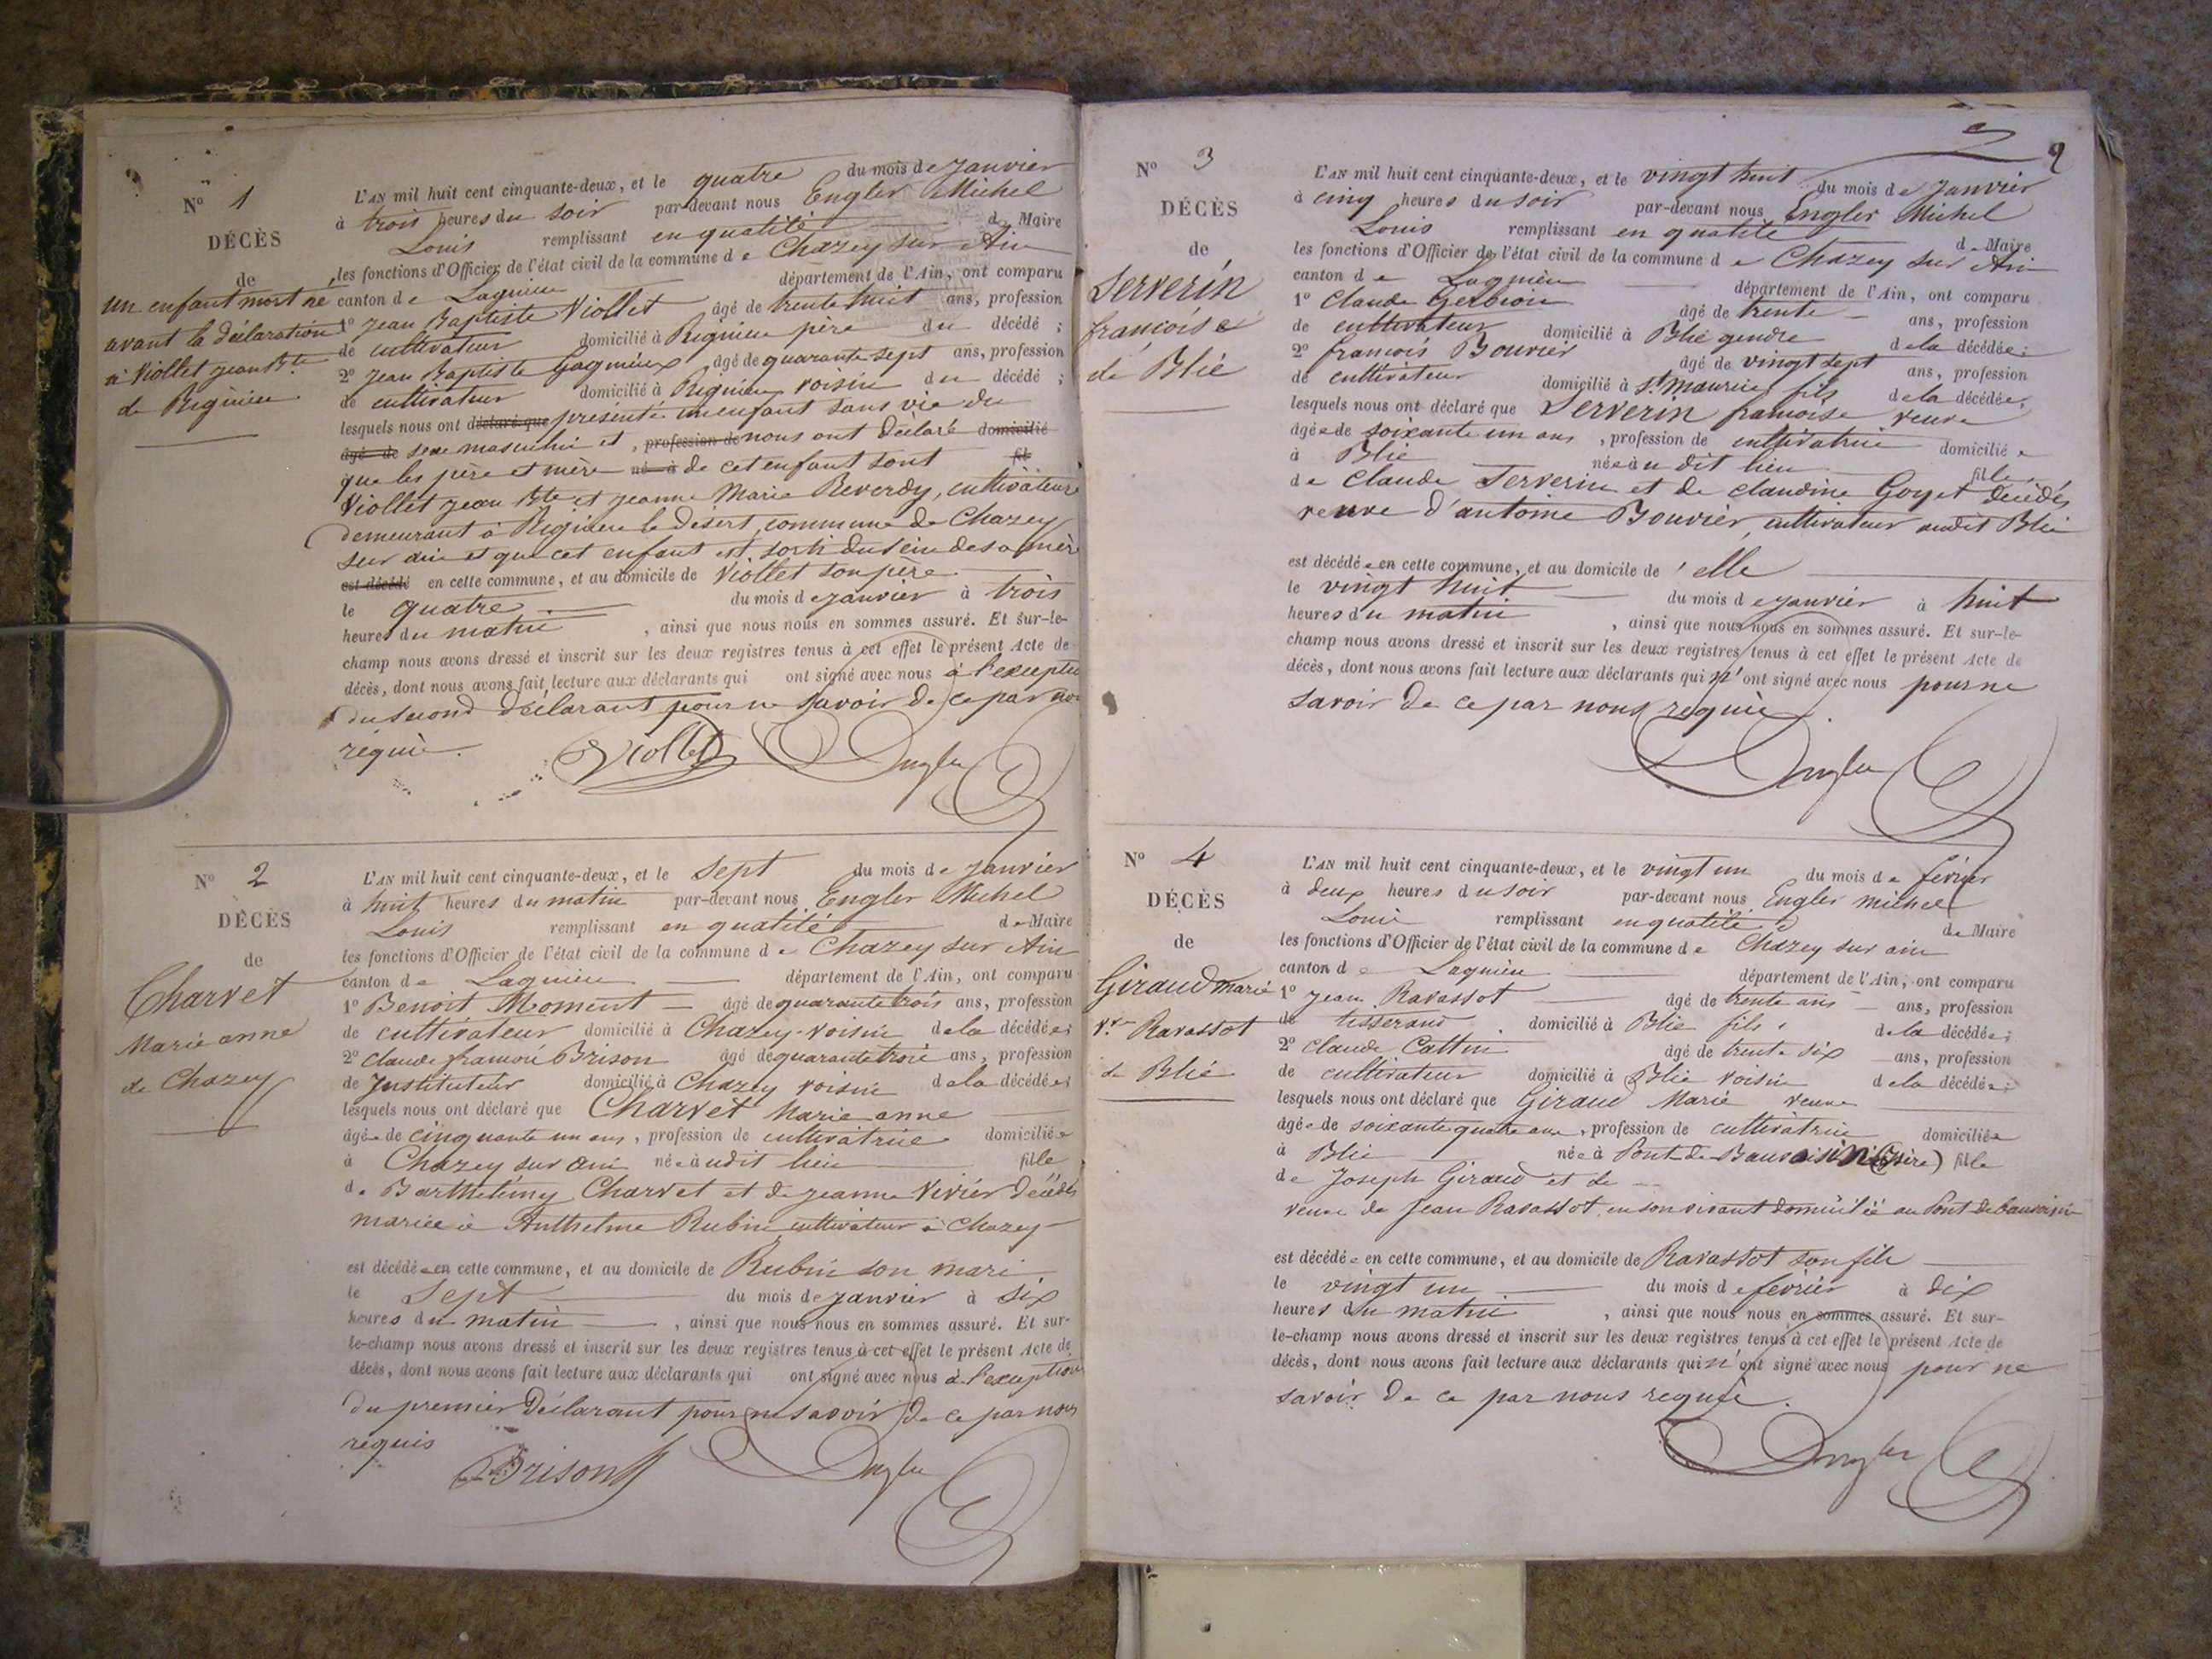 N° 1
DÉCÈS
de
un enfant mort né
avant la déclaration
à Viollet jean Bte
de Rignieu
L'AN mil huit cent cinquante-deux, et le quatre du mois de janvier
à trois heures du soir par-devant nous Engler Michel
Louis remplissant en qualité de Maire
les fonctions d'Officier de l'état civil de la commune de Chazey sur Ain
canton de Lagnieu département de l'Ain, ont comparu
1° jean Baptiste Viollet âgé de trente huit ans, profession
de cultivateur domicilié à Rignieu père du décédé ;
2° jean Baptiste Gagnieux âgé de quarante sept ans, profession
de cultivateur domicilié à Rignieu voisin du décédé ;
lesquels nous ont déclaré que présenté un enfant sans vie du
âgé de sexe masculin et , profession de nous ont déclaré domicilié
que les père et mère né à de cet enfant sont fil
Viollet jean Bte et jeanne Marie Reverdy, cultivateurs
demeurant à Rignieu le désert, commune de Chazey
sur ain et que cet enfant est sorti du sein de sa mère
est décédé en cette commune, et au domicile de Viollet son père
le quatre du mois de janvier à trois
heures du matin , ainsi que nous nous en sommes assuré. Et sur-le-
champ nous avons dressé et inscrit sur les deux registres tenus à cet effet le présent Acte de
décès, dont nous avons fait lecture aux déclarants qui ont signé avec nous à l'exceptio
du second déclarant pour ne savoir de ce par nous
requis.
Viollet Engler
N° 2
DÉCÈS
de
Charvet
Marie anne
de Chazey
L'AN mil huit cent cinquante-deux, et le sept du mois de janvier
à huit heures du matin par-devant nous Engler Michel
Louis remplissant en qualité de Maire
les fonctions d'Officier de l'état civil de la commune de Chazey sur Ain
canton de Lagnieu département de l'Ain, ont comparu
1° Benoit Moment âgé de quarante trois ans, profession
de cultivateur domicilié à Chazey voisin de la décédée ;
2° Claude françois Brison âgé de quarante trois ans, profession
de Instituteur domicilié à Chazey voisin de la décédée ;
lesquels nous ont déclaré que Charvet Marie anne
âgée de cinquante un ans, profession de cultivatrice domiciliée
à Chazey sur ain née audit lieu fille
de Barthelémy Charvet et de jeanne Vivier décédés
mariée à Anthelme Rubin cultivateur à Chazey
est décédée en cette commune, et au domicile de Rubin son mari
le Sept du mois de janvier à six
heures du matin , ainsi que nous nous en sommes assuré. Et sur-
le-champ nous avons dressé et inscrit sur les deux registres tenus à cet effet le présent Acte de
décès, dont nous avons fait lecture aux déclarants qui ont signé avec nous à l'exception
du premier déclarant pour ne savoir de ce par nous
requis
Brison Engler
2
N° 3
DÉCÈS
de
Serverin
françoise
de Blié
L'AN mil huit cent cinquante-deux, et le vingt huit du mois de janvier
à cinq heures du soir par-devant nous Engler Michel
Louis remplissant en qualité de Maire
les fonctions d'Officier de l'état civil de la commune de Chazey sur Ain
canton de Lagnieu département de l'Ain, ont comparu
1° Claude Gerbion âgé de trente ans, profession
de cultivateur domicilié à Blié gendre de la décédée ;
2° françois Bouvier âgé de vingt sept ans, profession
de cultivateur domicilié à St Maurice fils de la décédée ;
lesquels nous ont déclaré que Serverin françoise veuve
âgée de soixante un ans , profession de cultivatrice domiciliée
à Blié née au dit lieu fille
de Claude Serverin et de claudine Goyet décédés
veuve d'antoine Bouvier, cultivateur audit Blié
est décédée en cette commune, et au domicile de elle
le vingt huit du mois de janvier à huit
heures du matin , ainsi que nous nous en sommes assuré. Et sur-le-
champ nous avons dressé et inscrit sur les deux registres tenus à cet effet le présent Acte de
décès, dont nous avons fait lecture aux déclarants qui n'ont signé avec nous pour ne
savoir de ce par nous requis.
Engler
N° 4
DÉCÈS
de
Giraud Marie
Vve Ravassot
de Blié
L'AN mil huit cent cinquante-deux, et le vingt un du mois de févier
à deux heures du soir par-devant nous Engler michel
Louis remplissant en qualité de Maire
les fonctions d'Officier de l'état civil de la commune de Chazey sur ain
canton de Lagnieu département de l'Ain, ont comparu
1° jean Ravassot âgé de trente ans ans, profession
de tisserand domicilié à Blié fils de la décédée ;
2° Claude Cattin âgé de trente six ans, profession
de cultivateur domicilié à Blié voisin de la décédée ;
lesquels nous ont déclaré que Giraud Marie veuve
âgée de soixante quatre ans , profession de cultivatrice domiciliée
à Blié née à Pont de Bauvoisin (Isère) fille
de Joseph Giraud et de
veuve de Jean Ravassot en son vivant domicilié au Pont de bauvoisin
est décédée en cette commune, et au domicile de Ravassot son fils
le vingt un du mois de févier à dix
heures du matin , ainsi que nous nous en sommes assuré. Et sur-
le-champ nous avons dressé et inscrit sur les deux registres tenus à cet effet le présent Acte de
décès, dont nous avons fait lecture aux déclarants qui n'ont signé avec nous pour ne
savoir de ce par nous requis.
Engler